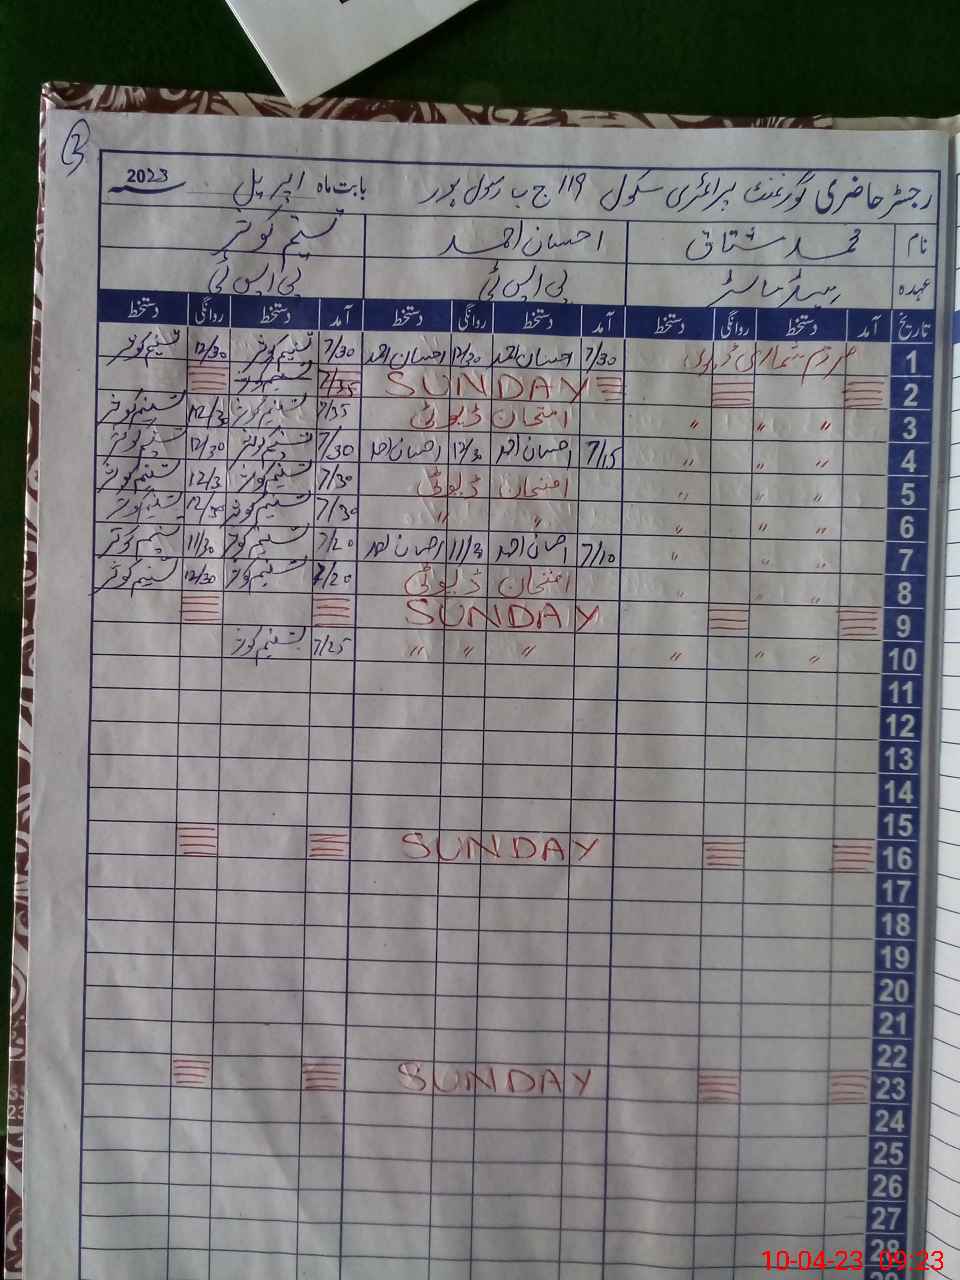 3
رجسٹر حاضری گورنمنٹ پرائمری سکول 119 ج ب رسول پور بابت ماہ اپریل 2023
نام محمد مشتاق احسان احمد تسنیم کوثر
عہدہ ہیڈ ماسٹر پی ایس ٹی پی ایس ٹی
تاریخ آمد دستخط روانگی دستخط آمد دستخط روانگی دستخط آمد دستخط روانگی دستخط
1 مردم شماری ڈیوٹی 7/30 احسان احمد 12/30 احسان احمد 7/30 تسنیم کوثر 12/30 تسنیم کوثر
2 SUNDAY 7/35 تسنیم کوثر
3 " " " امتحان ڈیوٹی 7/35 تسنیم کوثر 12/3 تسنیم کوثر
4 " " " 7/15 احسان احمد 12/30 احسان احمد 7/30 تسنیم کوثر 12/30 تسنیم کوثر
5 " " " امتحان ڈیوٹی 7/30 تسنیم کوثر 12/3 تسنیم کوثر
6 " " " " " 7/30 تسنیم کوثر 12/30 تسنیم کوثر
7 " " " 7/10 احسان احمد 11/30 احسان احمد 7/20 تسنیم کوثر 11/30 تسنیم کوثر
8 " " " امتحان ڈیوٹی 7/20 تسنیم کوثر 12/30 تسنیم کوثر
9 SUNDAY
10 " " " " " " 7/25 تسنیم کوثر
11
12
13
14
15
16 SUNDAY
17
18
19
20
21
22
23 SUNDAY
24
25
26
27
28
10-04-23 09:23